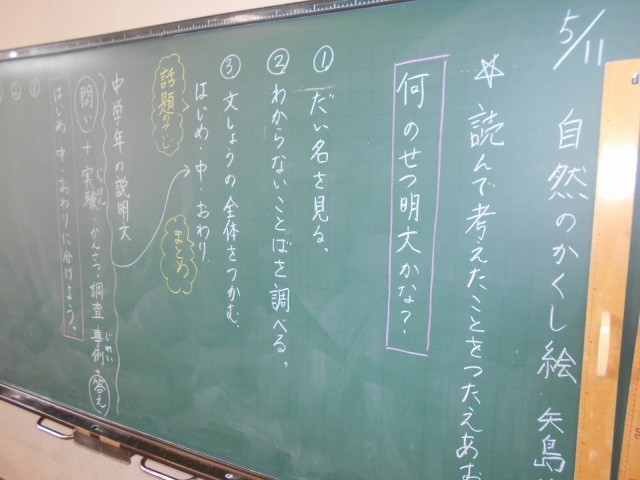 5/11
自然のかくし絵 矢島
☆読んで考えたことをつたえあお
何のせつ明文かな？
① だい名を見る。
② わからないことばを調べる。
③ 文しょうの全体をつかむ。
はじめ・中・おわり
話題
まとめ
中学年の説明文
問い + 実験・かんさつ・調査・事例+答え
じっけん
じれい
はじめ・中・おわりに分けよう。
①
②